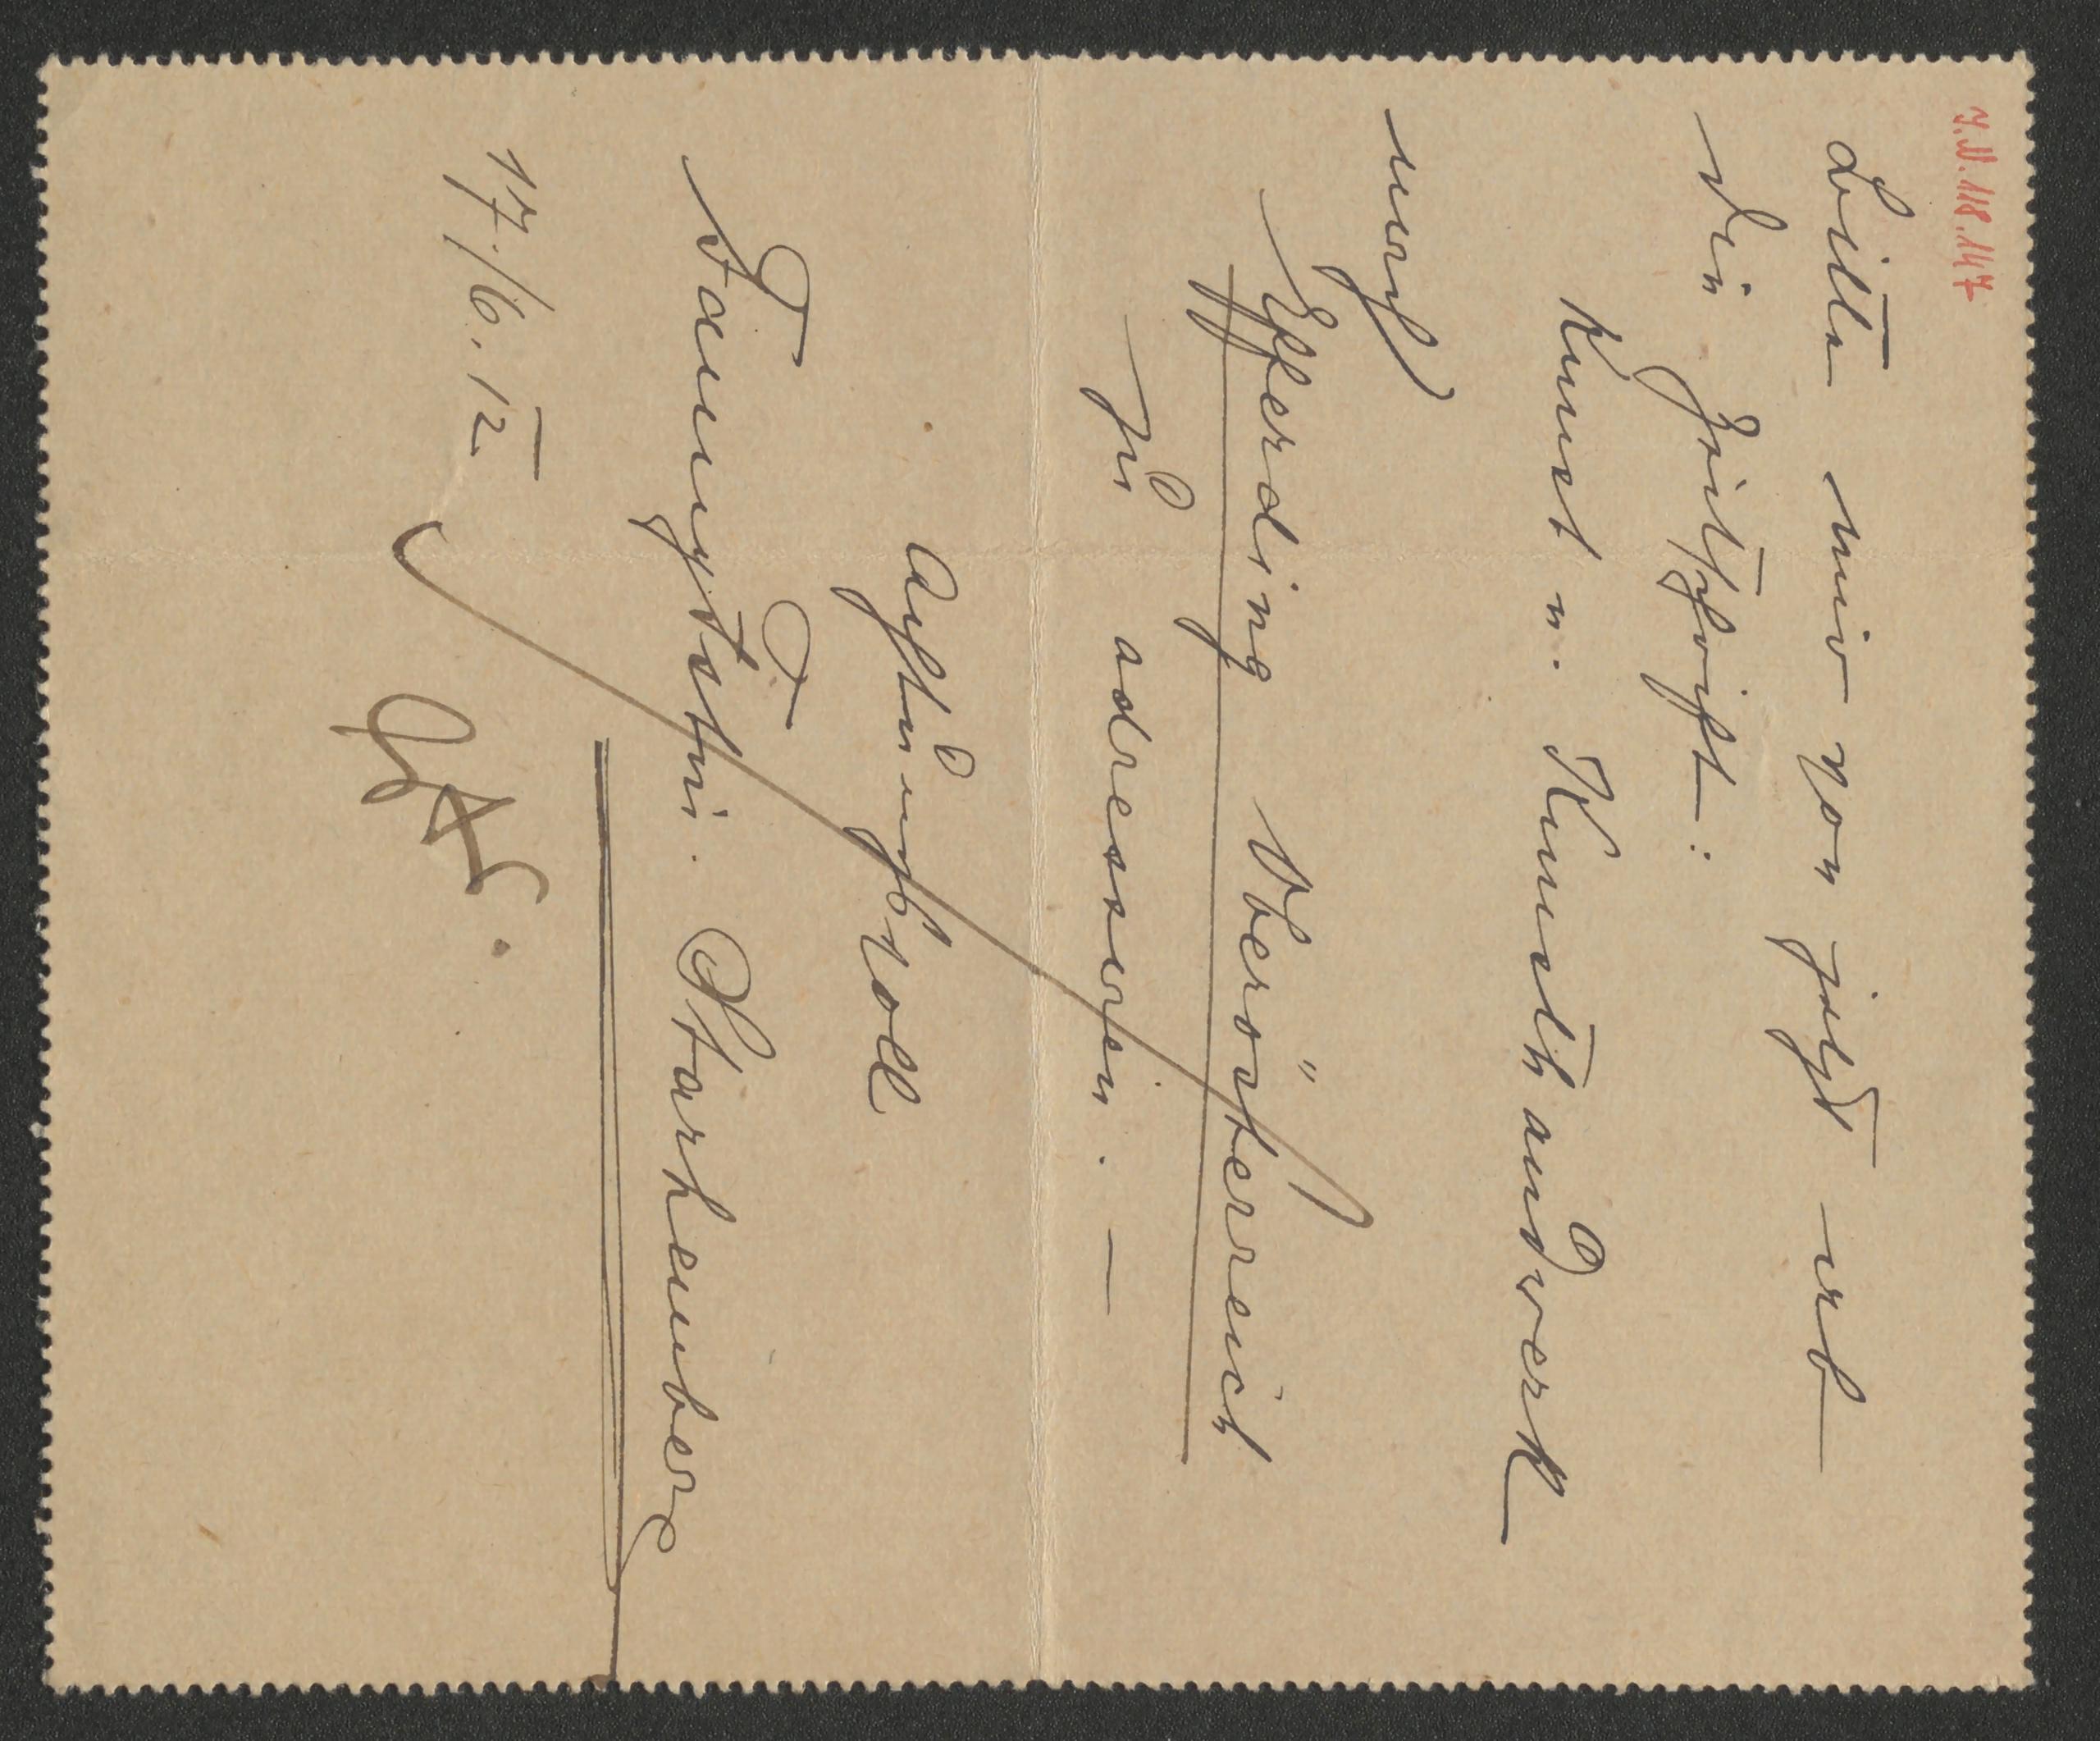 I.N. 118.147
Bitte mir von jetzt ab
die Zeitschrift:
Kunst u. Kunsthandwerk
nach
Efferding Oberösterreich
zu adressiren. —
Achtungsvoll
Starhemberg
17./6. 12